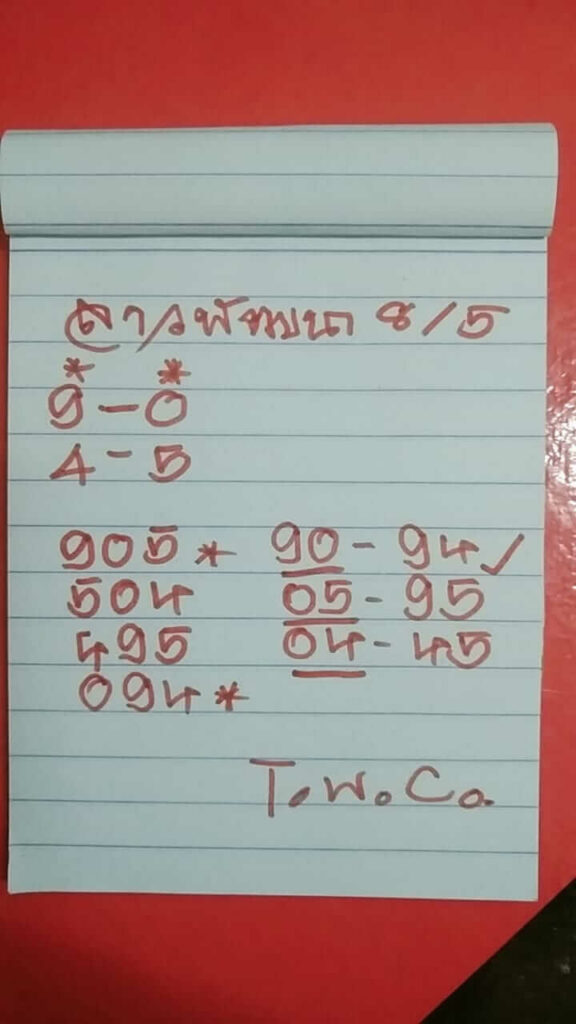 ลาวพัฒนา 8/5
* *
9-0
4-5
905* 90-94✓
504 05-95
495 04-45
094*
T.W.Co.